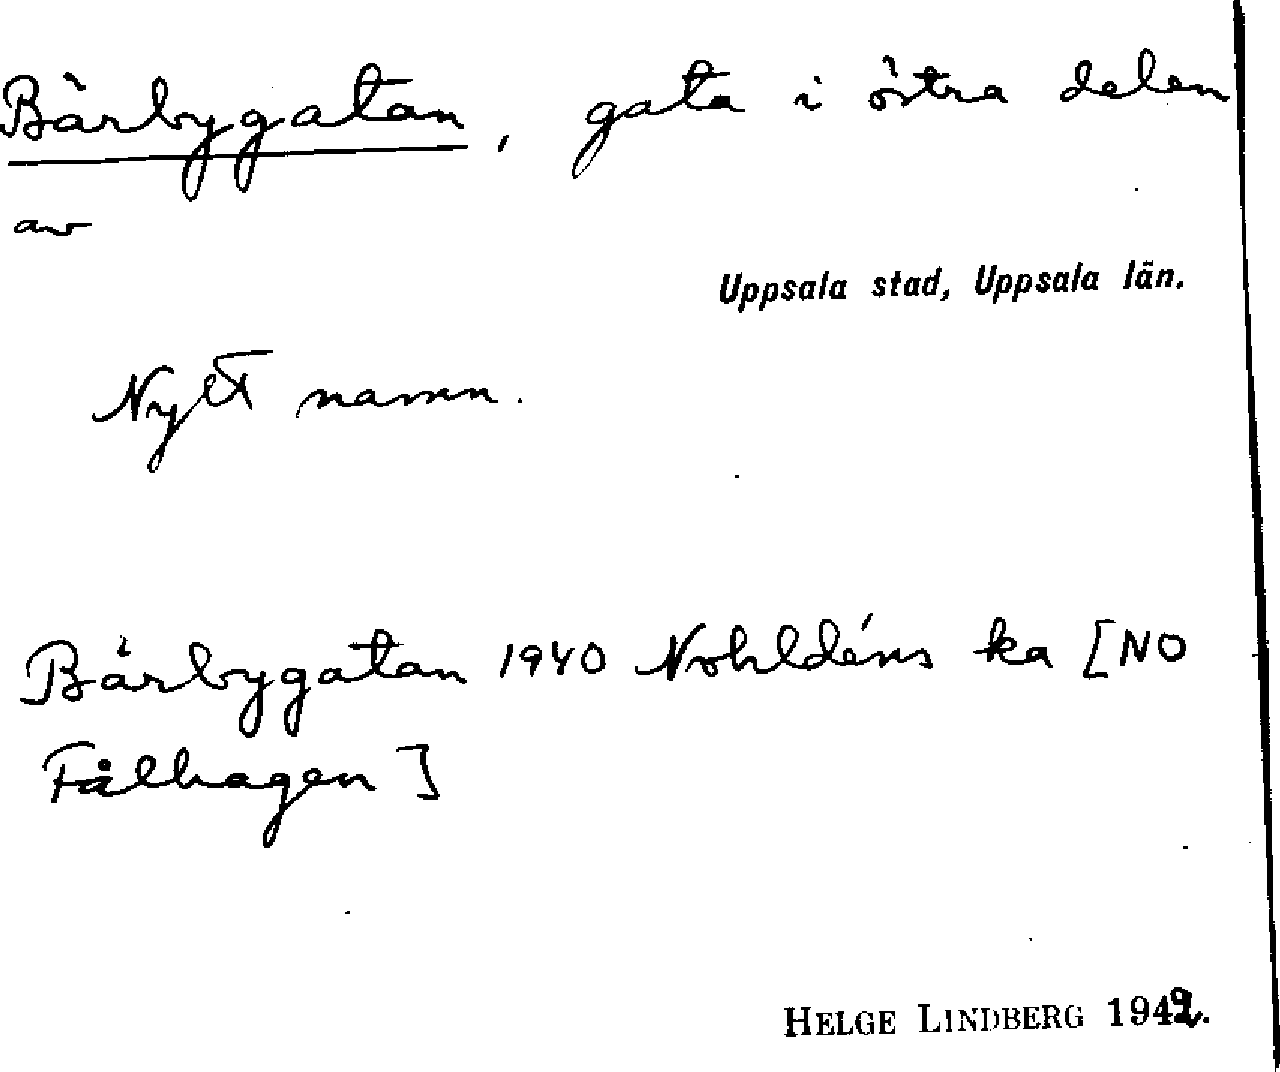 Bärbygatan, gata i östra delen
av
Uppsala stad, Uppsala län.
Nytt namn.
Bärbygatan 1940 Nohldéns ka [NO
Fålhagen]
HELGE LINDBERG 1942.